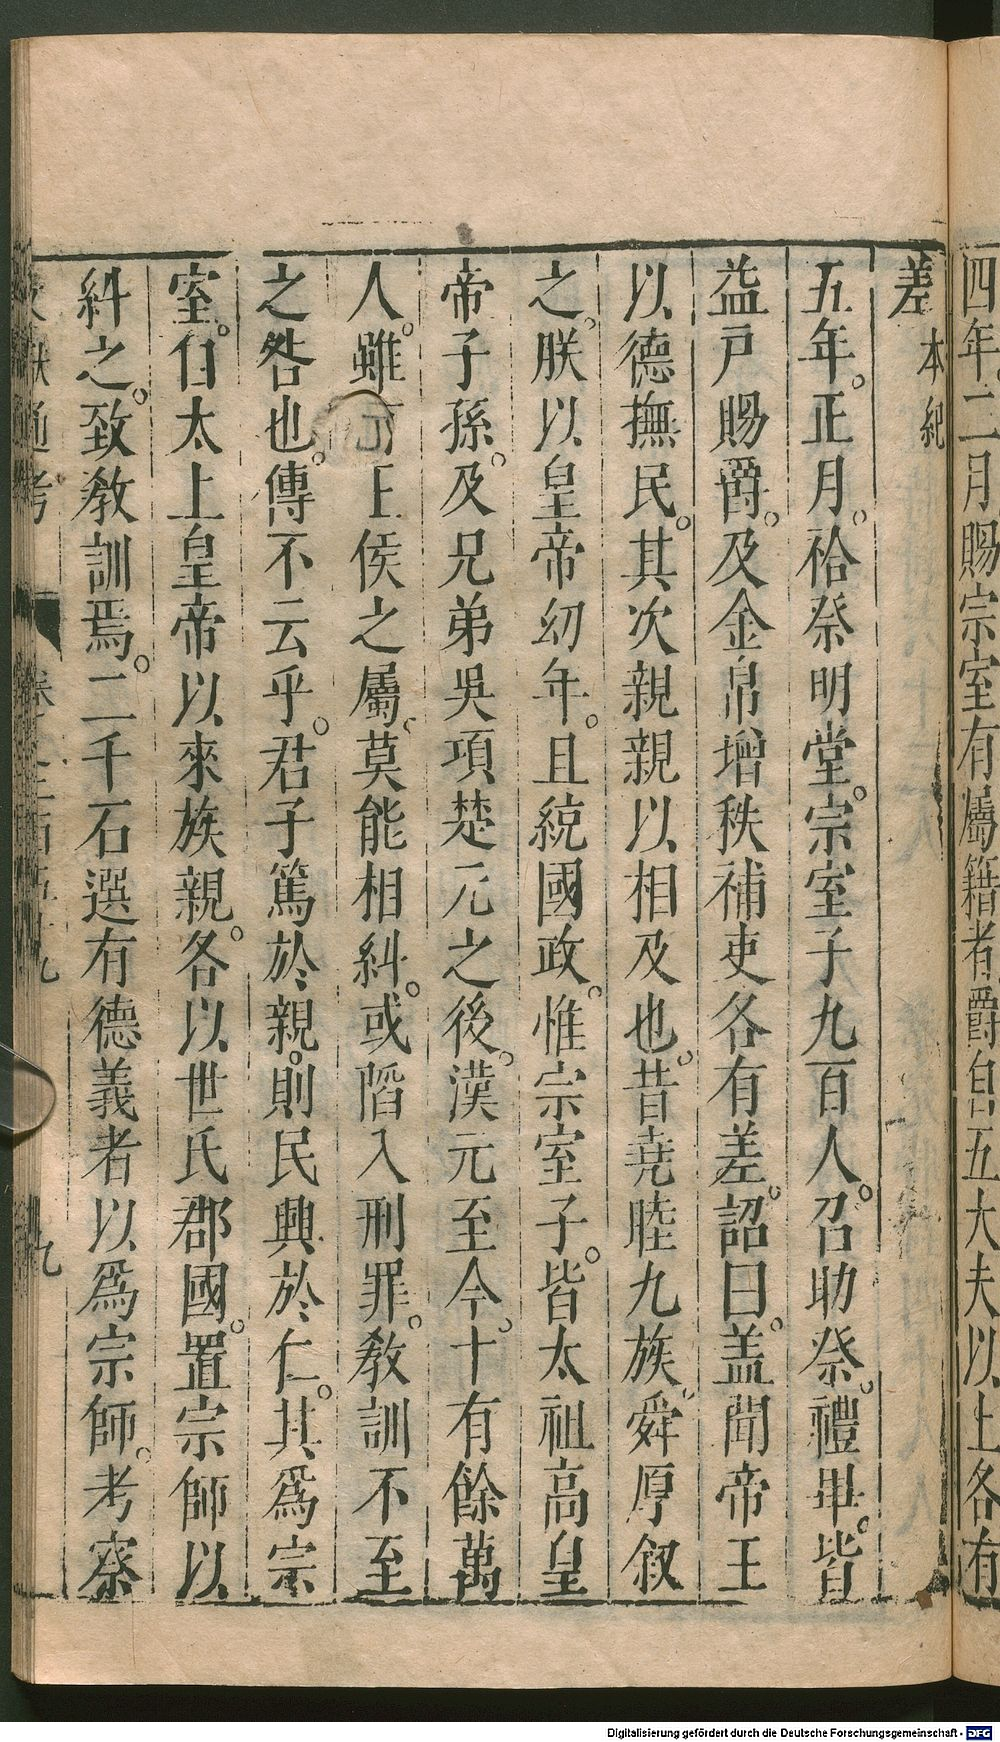 四年二月賜宗室有屬籍者爵自五大夫以上各有
差 本紀
五年。正月。祫祭明堂。宗室子九百人。召助祭。禮畢。皆
益戸賜爵。及金帛增秩補吏各有差。詔曰。盖聞帝王
以德撫民。其次親親以相及也。昔堯睦九族。舜厚叙
之。朕以皇帝幼年。且統國政。惟宗室子。皆太祖高皇
帝子孫。及兄弟吳項楚元之後。漢元至今。十有餘萬
人。雖有王侯之屬。莫能相糾。或陷入刑罪。敎訓不至
之咎也。傳不云乎。君子篤於親。則民興於仁。其爲宗
室。自太上皇帝以來族親。各以世氏郡國。置宗師以
糾之。致敎訓焉。二千石選有德義者以爲宗師。考察
文獻通考 卷二百五十九 九
Digitalisierung gefördert durch die Deutsche Forschungsgemeinschaft - DFG